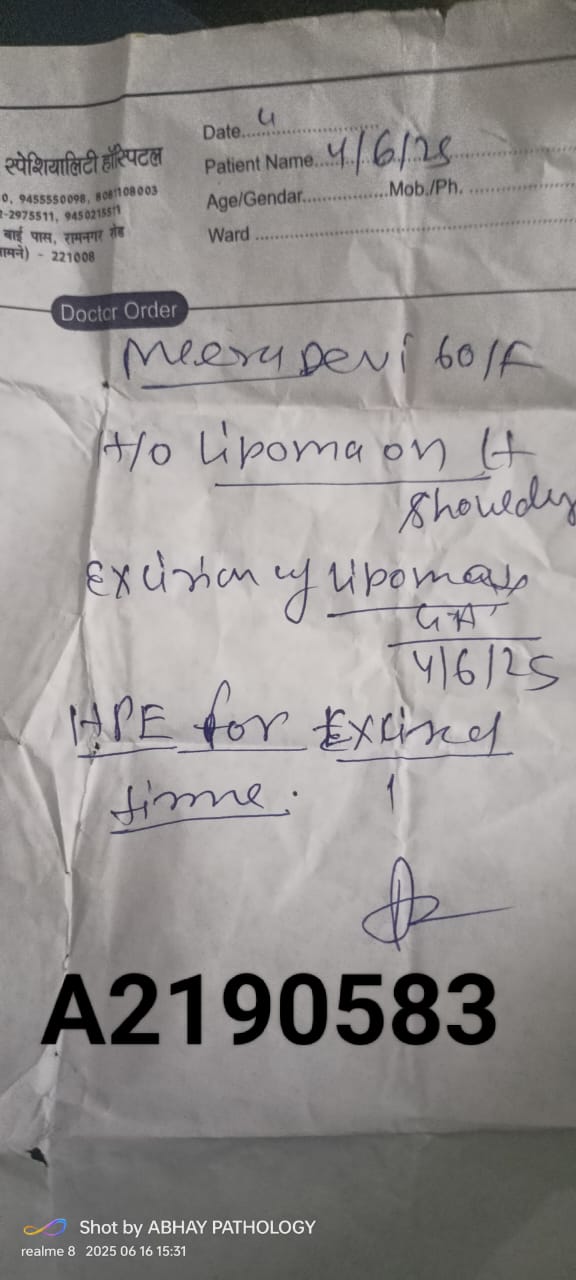 स्पेशियालिटी हॉस्पिटल
0, 9455550098, 8081108003
2-2975511, 9450215511
बाई पास, रामनगर रोड
सामने) - 221008
Date.....4.....
Patient Name...4/6/25
Age/Gendar...............Mob./Ph. ...............
Ward ...............
Doctor Order
Meera Devi 60/F
H/o Lipoma on Lt
Shoulder
Excision of Lipoma
GA
4/6/25
HPE for Excised
tissue.
A2190583
Shot by ABHAY PATHOLOGY
realme 8 2025 06 16 15:31